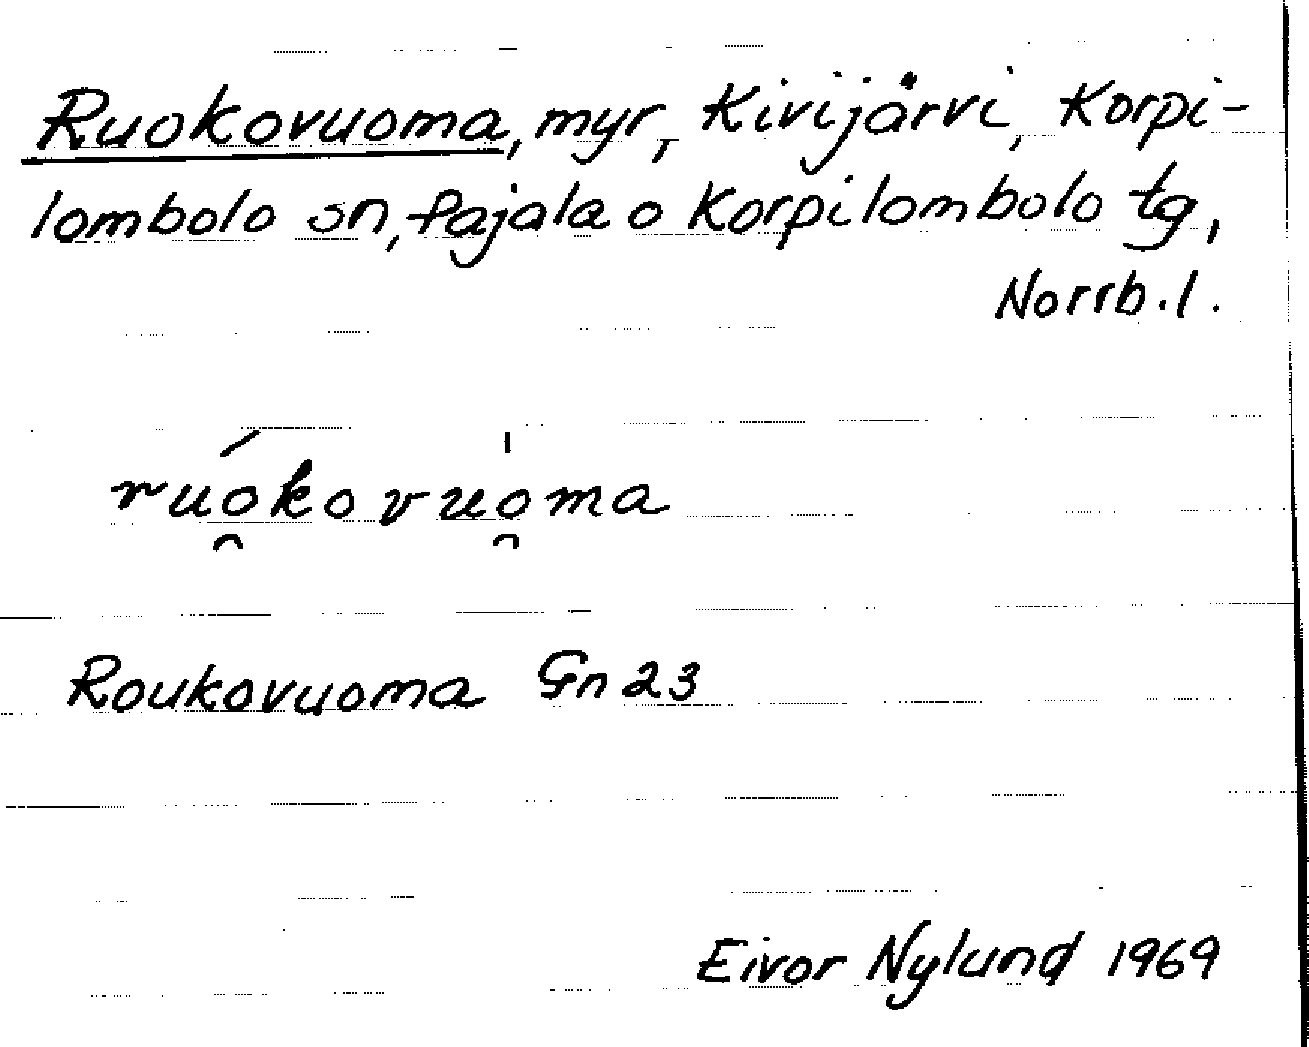 Ruokovuoma, myr, Kivijärvi, Korpi-
lombolo sn, Pajala o Korpilombolo tg,
Norrb.l.
ruó̯kovuo̯̍ma
Roukovuoma Gn 23
Eivor Nylund 1969